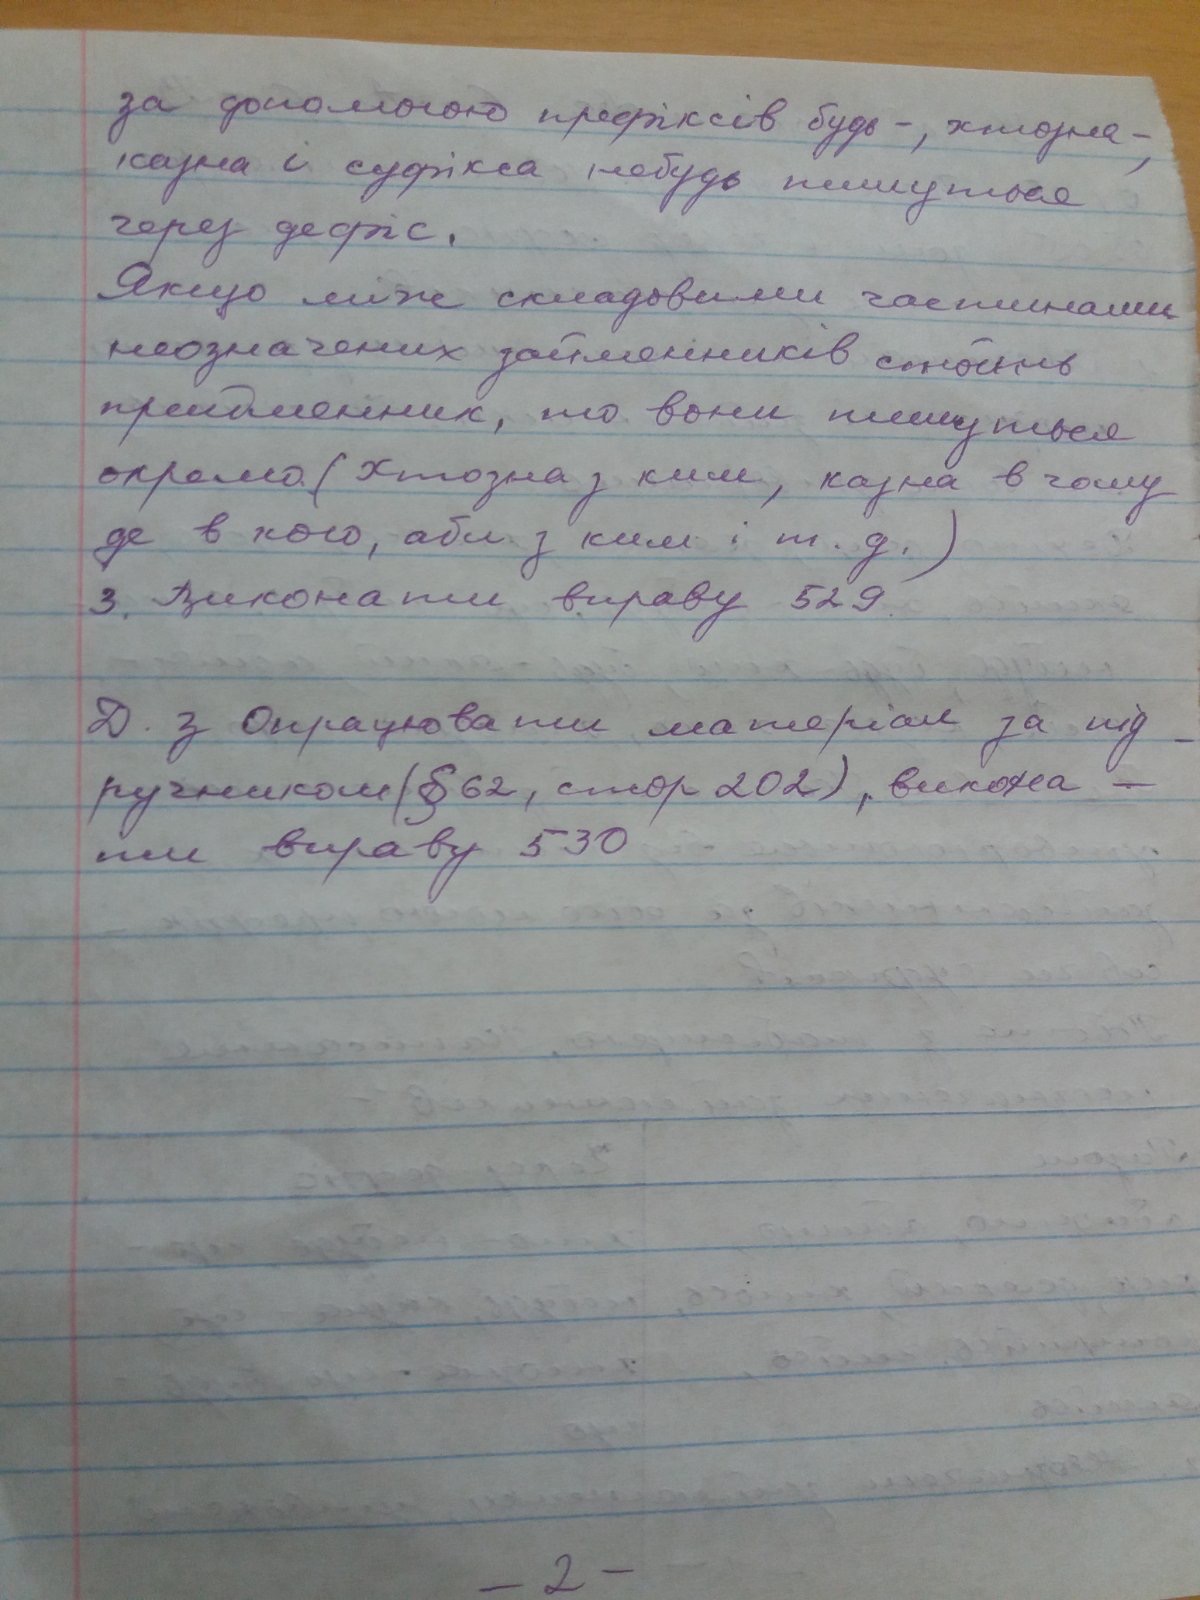 за допомогою префіксів будь-, хтозна-,
казна і суфікса небудь пишуться
через дефіс.
Якщо між складовими частинами
неозначених займенників стоїть
прийменник, то вони пишуться
окремо (Хтозна з ким, казна в чому
де в кого, аби з ким і т. д.)
3. Виконати вправу 529.
Д. з Опрацювати матеріал за під-
ручником (§ 62, стор 202), викона-
ти вправу 530
- 2 -